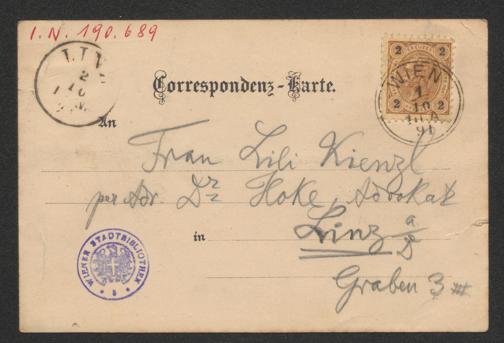 I.N. 190.689
LINZ
2
10
Correspondenz-Karte.
2 2
2 2
WIEN
1
10
91
An
Frau Lili Kienzl
per Adr. Dr Hoke, Advokat
in Linz a/D
Graben 3
WIENER STADTBIBLIOTHEK